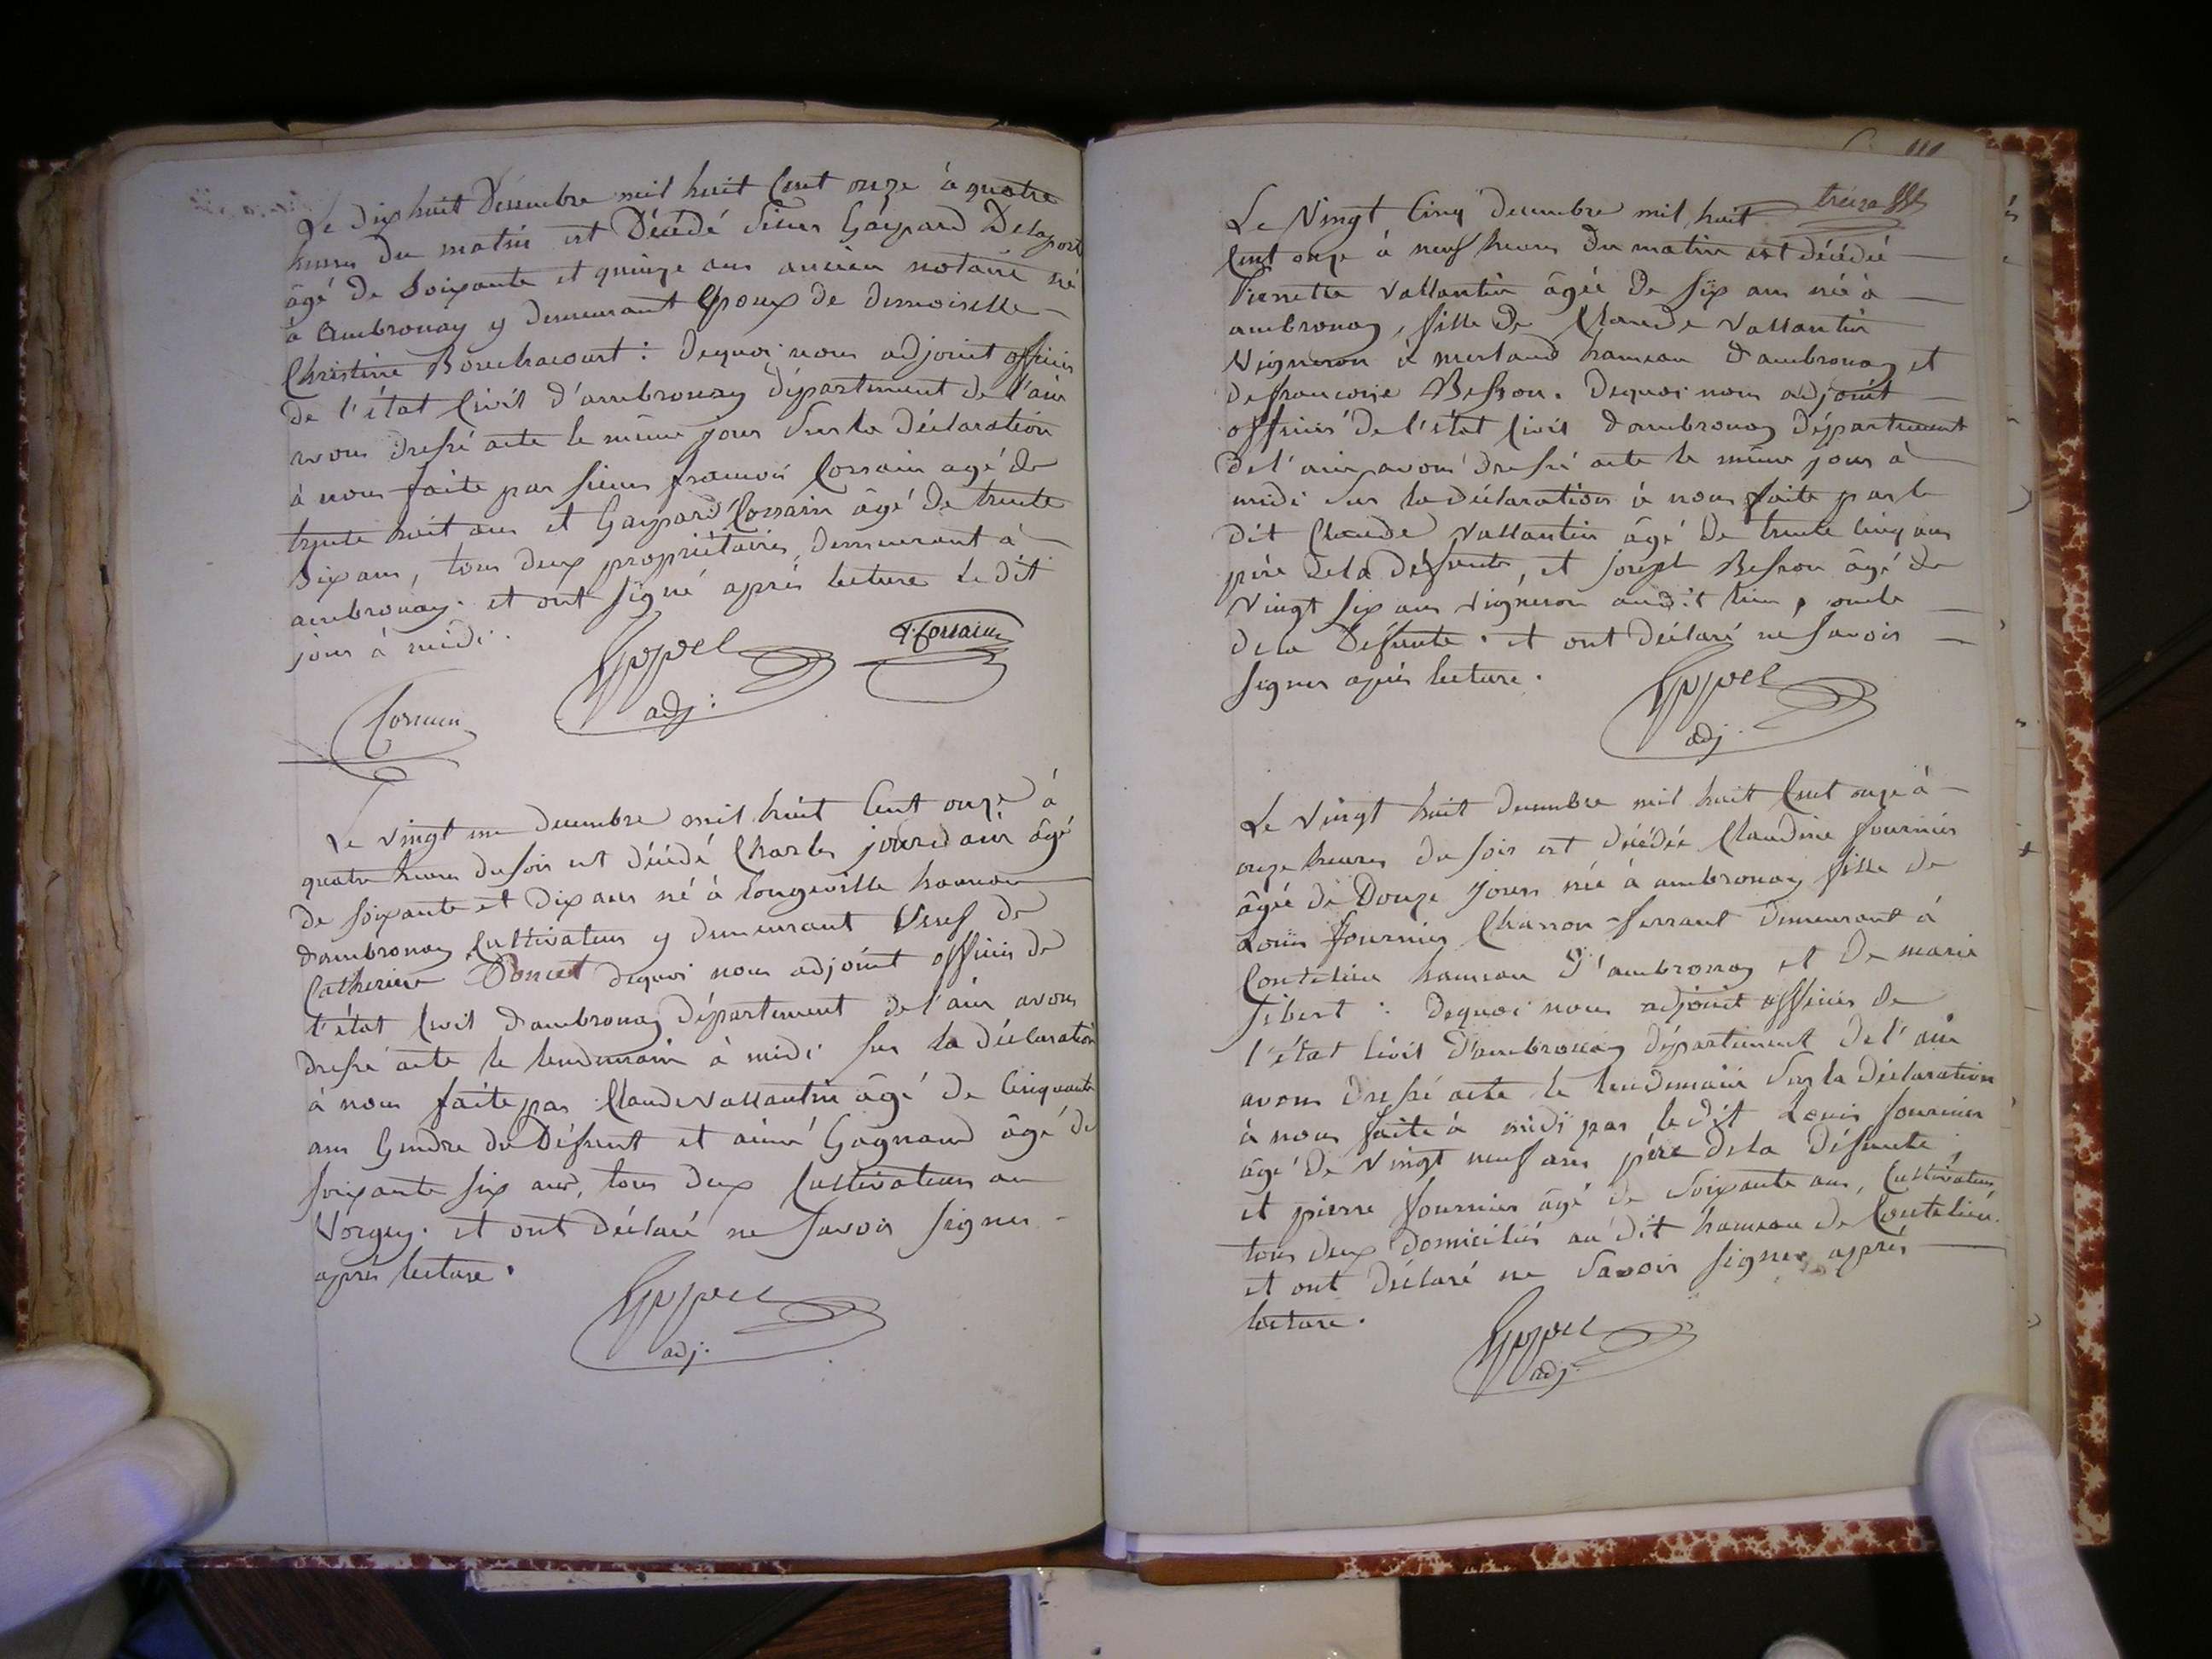 Le dix huit Decembre mil huit Cent onze à quatre
heures du matin est Décédé Sieur Gaspard Delaport
âgé de Soixante et quinze ans ancien notaire né
à Ambronay y demeurant Epoux de demoiselle
Christine : dequoi nous adjoint officier
de l'état Civil d'ambronay département de l'ain
avons dressé acte le même jour Sur la déclaration
à nous faite par Sieurs françois Cossain agé de
trente huit ans et Gaspard Cossain âgé de trente
Six ans, tous deux propriétaires, demeurant à
ambronay. et ont signé après lecture le dit
jour à midi.
adj:
Le vingt un decembre mil huit Cent onze à
quatre heures du soir est décédé Charles jourdain âgé
de soixante et dix ans né à Longeville hameau
d'ambronay Cultivateur y demeurant Veuf de
Catherine Poncet dequoi nous adjoint officier de
l'état Civil d'ambronay département de l'ain avons
dressé acte le lendemain à midi sur la déclaration
à nous faite par Claude vallantin âgé de Cinquante
ans Gendre du Défunt et aimé Gagnand âgé de
soixante six ans, tous deux Cultivateurs au
Vorgey. et ont déclaré ne savoir signer
après lecture.
adj.
treize
Le Vingt Cinq decembre mil huit
Cent onze à neuf heures du matin est décédée
Pierrette vallantin âgée de six ans née à
ambronay, fille de Claude vallantin
Vigneron à merland hameau d'ambronay et
de françoise Besson. dequoi nous adjoint
officier de l'état Civil d'ambronay département
de l'ain avons dressé acte le même jour à
midi Sur la déclaration à nous faite par le
dit Claude vallantin âgé de trente Cinq ans
père de la défunte, et joseph Besson âgé de
Vingt six ans vigneron audit lieu, oncle
de la défunte. et ont déclaré ne savoir
signer après lecture.
adj.
Le vingt huit decembre mil huit Cent onze à
onze heures du soir est décédée Claudine fournier
âgée de Douze jours née à ambronay fille de
Louis fournier Charron-ferrant demeurant à
Coutelieu hameau d'ambronay et de marie
Sibert : dequoi nous adjoint officier de
l'état Civil d'ambronay département de l'ain
avons dressé acte le lendemain Sur la déclaration
à nous faite à midi par le dit Louis fournier
âgé de Vingt neuf ans père de la défunte,
et pierre fournier âgé de Soixante ans, Cultivateur
tous deux domiciliés au dit hameau de Coutelieu.
et ont déclaré ne Savoir signer après
lecture.
adj.